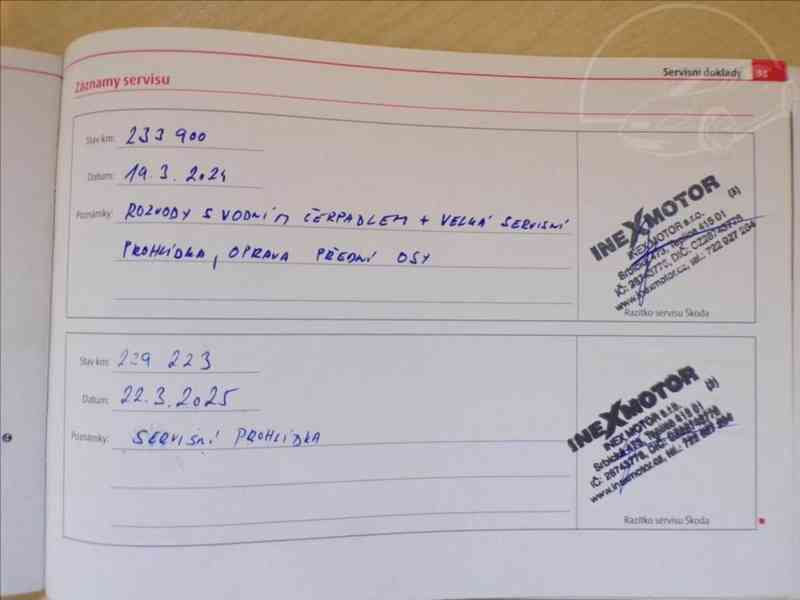 Servisní doklady
Záznamy servisu
Stav km: 233 900
Datum: 19.3.2024
Poznámky: ROZVODY S VODNÍM ČERPADLEM + VELKÁ SERVISNÍ
PROHLÍDKA, OPRAVA PŘEDNÍ OSY
INEXMOTOR
(3)
INEXMOTOR s.r.o.
Srbická 473, Teplice 415 01
IČ: 28743776, DIČ: CZ28743776
www.inexmotor.cz, tel.: 722 927 294
Razítko servisu Škoda
Stav km: 239 223
Datum: 22.3.2025
Poznámky: SERVISNÍ PROHLÍDKA
INEXMOTOR
(3)
INEXMOTOR s.r.o.
Srbická 473, Teplice 415 01
IČ: 28743776, DIČ: CZ28743776
www.inexmotor.cz, tel.: 722 927 294
Razítko servisu Škoda